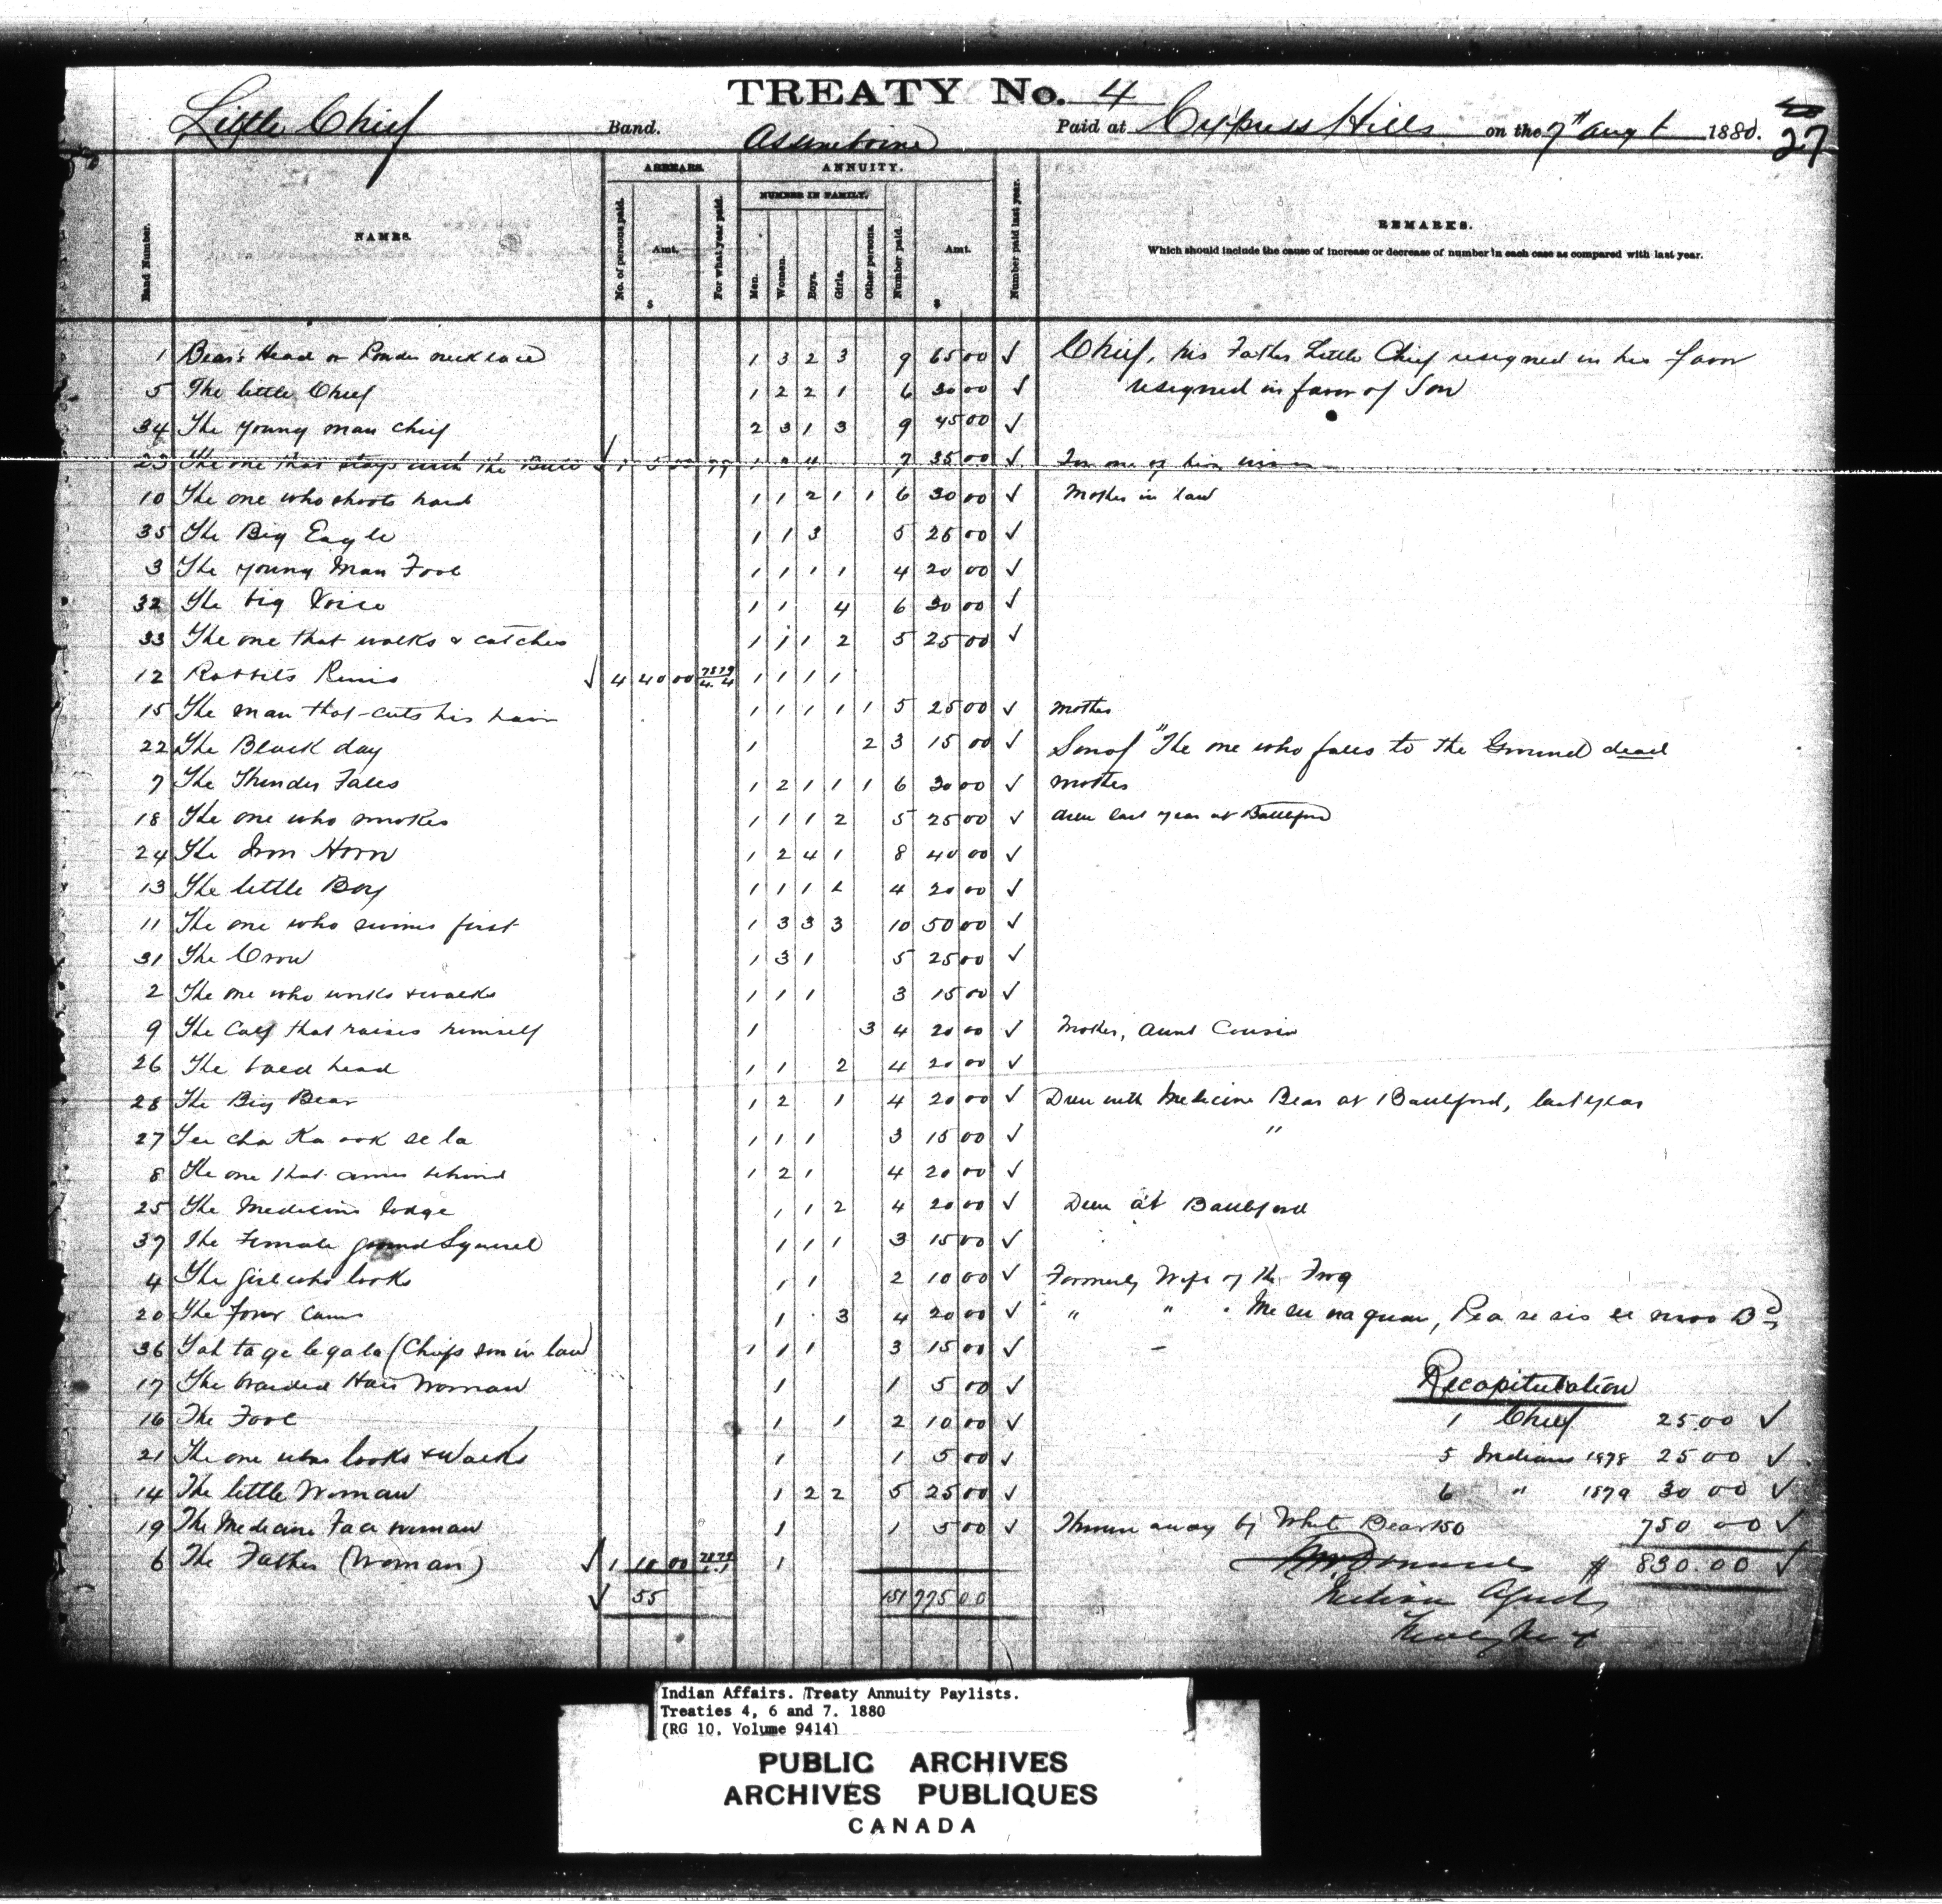 TREATY No. 4
Little Chief Band. Assineboine Paid at Cypress Hills on the 7th Augt 1880. 27
ARREARS. ANNUITY.
NUMBER IN FAMILY.
Band Number. NAMES. No. of persons paid. Amt. $ For what year paid. Men. Women. Boys. Girls. Other persons. Number paid. Amt. $ Number paid last year. REMARKS.
Which should include the cause of increase or decrease of number in each case as compared with last year.
1 Bear's Head or Powder necklace 1 3 2 3 9 65 00 ✓ Chief, his Father Little Chief resigned in his favor
5 The little Chief 1 2 2 1 6 30 00 ✓ resigned in favor of Son
34 The young man chief 2 3 1 3 9 45 00 ✓
23 The one that stays with the Bull ✓ 1 5 00 79 1 2 4 7 35 00 ✓ For one of his
10 The one who shoots hard 1 1 2 1 1 6 30 00 ✓ Mother in law
35 The Big Eagle 1 1 3 5 25 00 ✓
3 The young Man Fool 1 1 1 1 4 20 00 ✓
32 The big Voice 1 1 4 6 30 00 ✓
33 The one that walks & catches 1 1 1 2 5 25 00 ✓
12 Rabbits ✓ 4 40 00 78 79 4. 4 1 1 1 1
15 The man that cuts his hair 1 1 1 1 1 5 25 00 ✓ Mother
22 The Black day 1 2 3 15 00 ✓ Son of "The one who falls to the Ground dead
7 The Thunder Falls 1 2 1 1 1 6 30 00 ✓ Mother
18 The one who smokes 1 1 1 2 5 25 00 ✓ drew last year at Battleford
24 The Iron Horn 1 2 4 1 8 40 00 ✓
13 The little Boy 1 1 1 1 4 20 00 ✓
11 The one who swims first 1 3 3 3 10 50 00 ✓
31 The Crow 1 3 1 5 25 00 ✓
2 The one who works & walks 1 1 1 3 15 00 ✓
9 The Calf that raises himself 1 3 4 20 00 ✓ Mother, Aunt Cousin
26 The bald head 1 1 2 4 20 00 ✓
28 The Big Bear 1 2 1 4 20 00 ✓ Drew with Medicine Bear at Battleford, last year
27 cha Ka ook se la 1 1 1 3 15 00 ✓ "
8 The one that comes behind 1 2 1 4 20 00 ✓
25 The Medicine lodge 1 1 2 4 20 00 ✓ Drew at Battleford
37 The Female ground Squirrel 1 1 1 3 15 00 ✓
4 The girl who looks 1 1 2 10 00 ✓ Formerly Wife of the Frog
20 The four 1 3 4 20 00 ✓ " " Bd
36 Yah ta ge le ga la (Chiefs son in law) 1 1 1 3 15 00 ✓
17 The braided Hair Woman 1 1 5 00 ✓ Recapitulation
16 The Fool 1 1 2 10 00 ✓ 1 Chief 25.00 ✓
21 The one who looks & Walks 1 1 5 00 ✓ 5 Indians 1878 25 00 ✓
14 The little Woman 1 2 2 5 25 00 ✓ 6 " 1879 30 00 ✓
19 The Medicine Face woman 1 1 5 00 ✓ Thrown away by White Bear 150 750 00 ✓
6 The Father (Woman) ✓ 1 10 00 78 79 1 $ 830.00 ✓
✓ 55 151 775 00 Indian Agent
Indian Affairs. Treaty Annuity Paylists.
Treaties 4, 6 and 7. 1880
(RG 10, Volume 9414)
PUBLIC ARCHIVES
ARCHIVES PUBLIQUES
CANADA